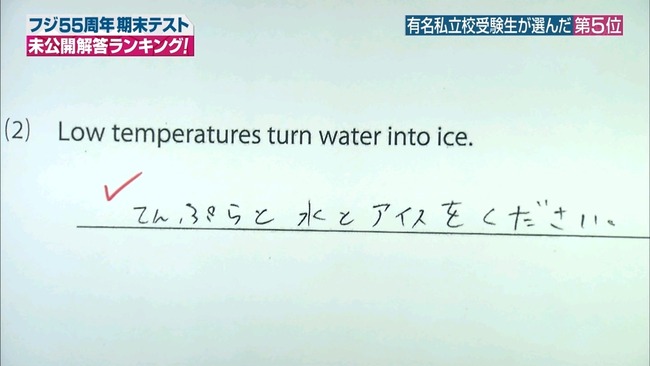 フジ55周年 期末テスト
未公開解答ランキング!
有名私立校受験生が選んだ 第5位
(2) Low temperatures turn water into ice.
てんぷらと 水と アイスを ください。